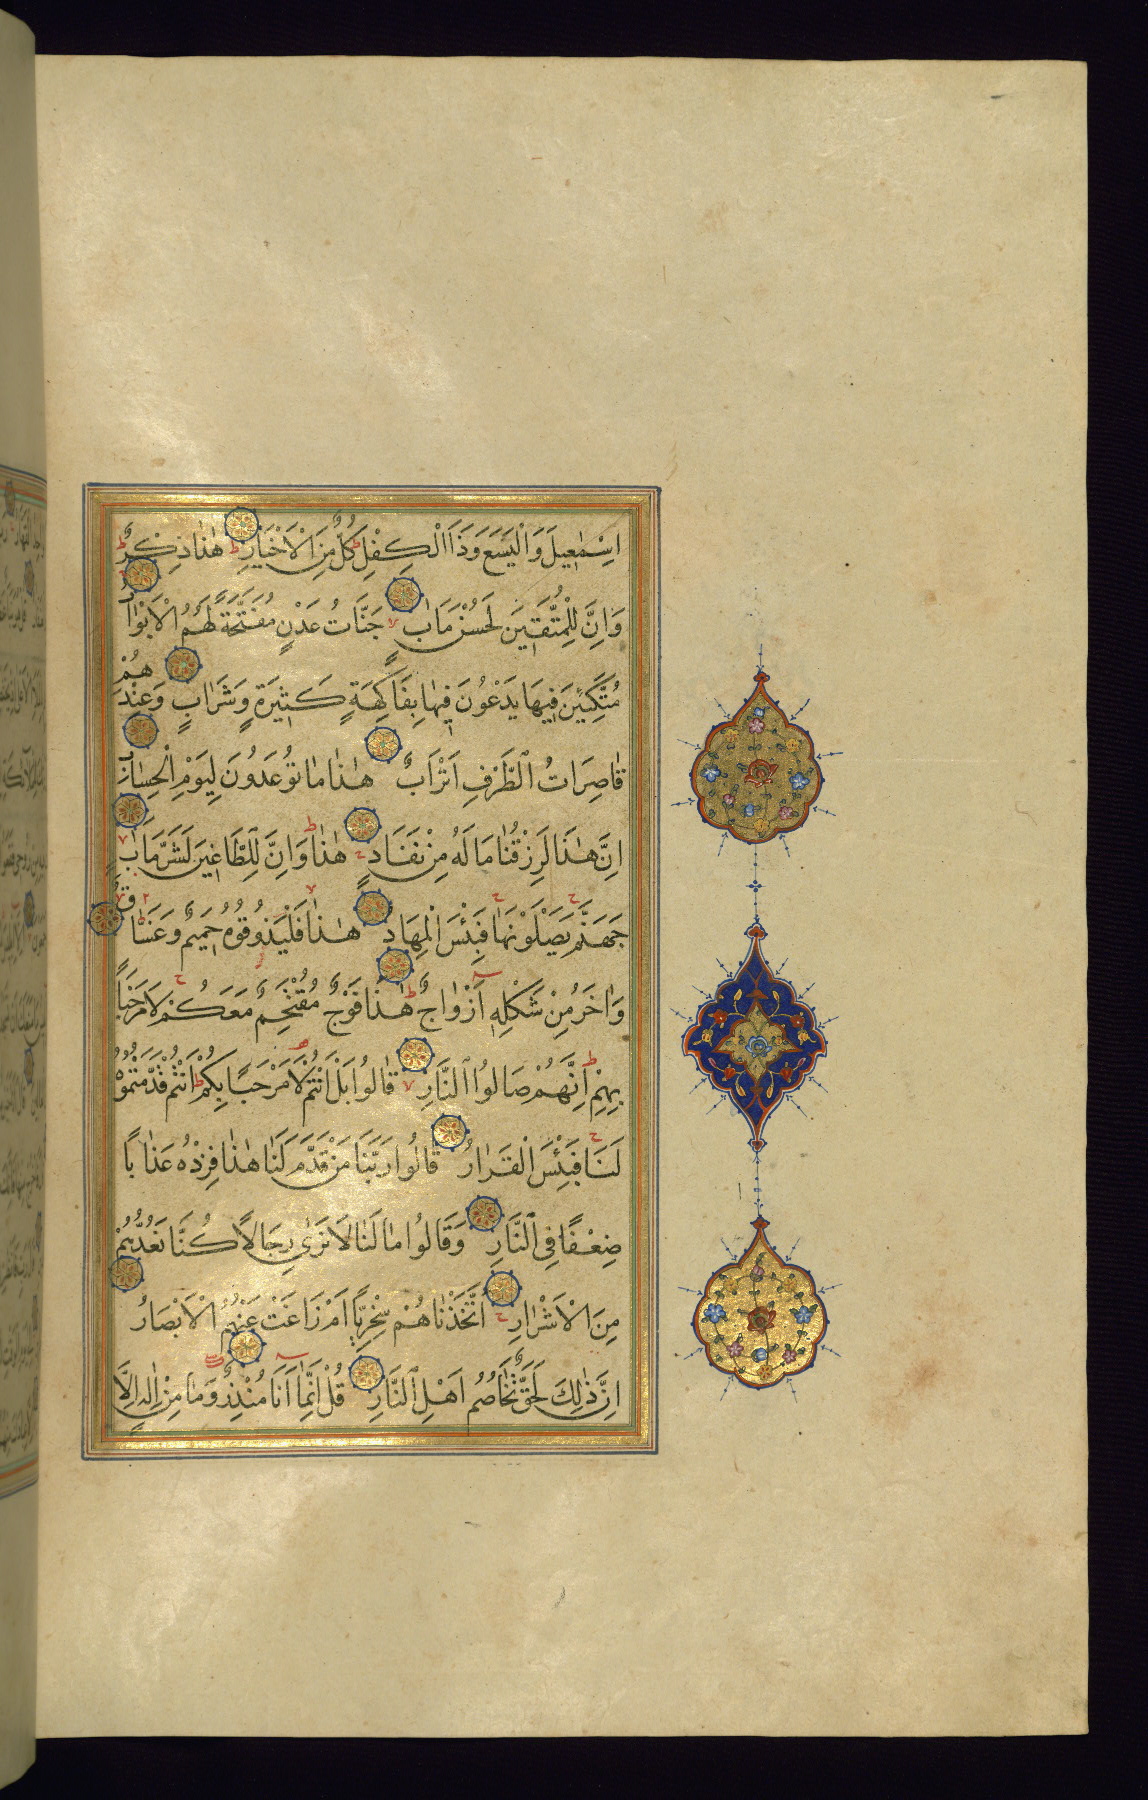 اِسْمٰعِيلَ وَالْيَسَعَ وَذَا الْكِفْلِ وَكُلٌّ مِنَ الْاَخْيَارِ هٰذَا ذِكْرٌ
وَاِنَّ لِلْمُتَّقِينَ لَحُسْنَ مَاٰبٍ جَنَّاتُ عَدْنٍ مُفَتَّحَةً لَهُمُ الْاَبْوَابُ
مُتَّكِئِينَ فِيهَا يَدْعُونَ فِيهَا بِفَاكِهَةٍ كَثِيرَةٍ وَشَرَابٍ وَعِنْدَهُمْ
قَاصِرَاتُ الطَّرْفِ اَتْرَابٌ هٰذَا مَا تُوعَدُونَ لِيَوْمِ الْحِسَابِ
اِنَّ هٰذَا لَرِزْقُنَا مَا لَهُ مِنْ نَفَادٍ هٰذَا وَاِنَّ لِلطَّاغِينَ لَشَرَّ مَاٰبٍ
جَهَنَّمَ يَصْلَوْنَهَا فَبِئْسَ الْمِهَادُ هٰذَا فَلْيَذُوقُوهُ حَمِيمٌ وَغَسَّاقٌ
وَاٰخَرُ مِنْ شَكْلِهِ اَزْوَاجٌ هٰذَا فَوْجٌ مُقْتَحِمٌ مَعَكُمْ لَا مَرْحَبًا
بِهِمْ اِنَّهُمْ صَالُوا النَّارِ قَالُوا بَلْ اَنْتُمْ لَا مَرْحَبًا بِكُمْ اَنْتُمْ قَدَّمْتُمُوهُ
لَنَا فَبِئْسَ الْقَرَارُ قَالُوا رَبَّنَا مَنْ قَدَّمَ لَنَا هٰذَا فَزِدْهُ عَذَابًا
ضِعْفًا فِي النَّارِ وَقَالُوا مَا لَنَا لَا نَرٰى رِجَالًا كُنَّا نَعُدُّهُمْ
مِنَ الْاَشْرَارِ اَتَّخَذْنَاهُمْ سِخْرِيًّا اَمْ زَاغَتْ عَنْهُمُ الْاَبْصَارُ
اِنَّ ذٰلِكَ لَحَقٌّ تَخَاصُمُ اَهْلِ النَّارِ قُلْ اِنَّمَا اَنَا مُنْذِرٌ وَمَا مِنْ اِلٰهٍ اِلَّا